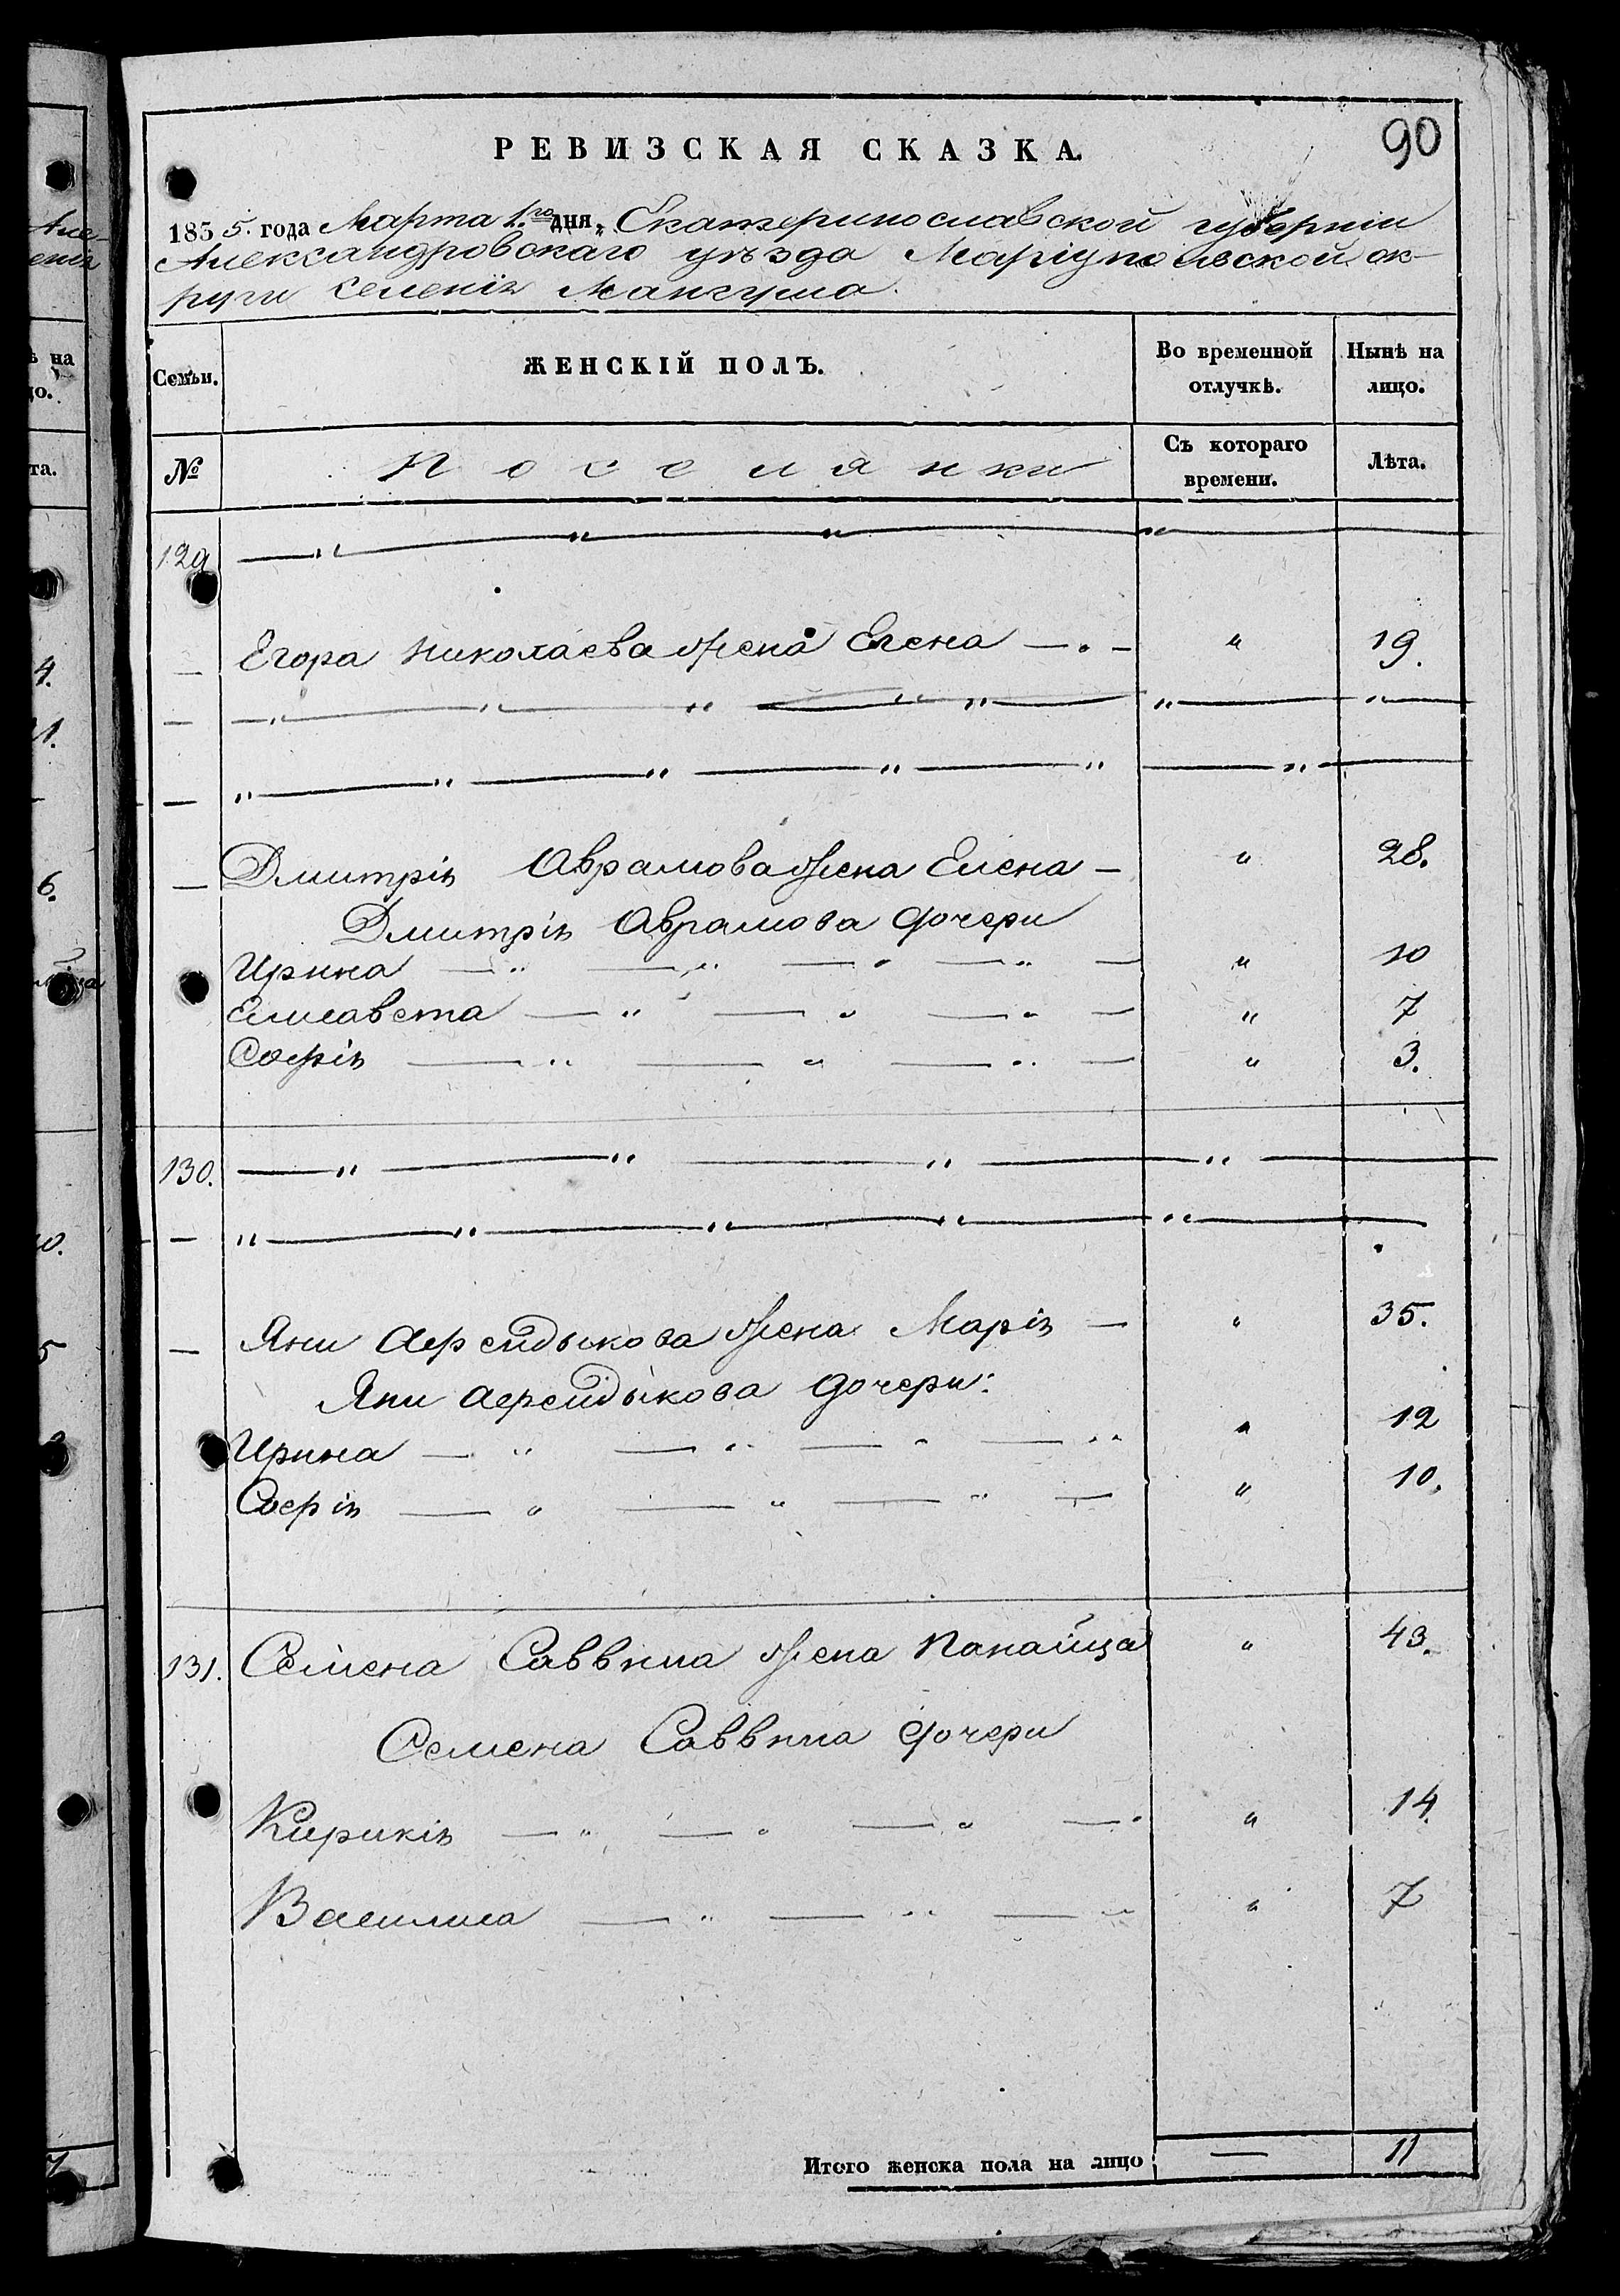 90
РЕВИЗСКАЯ СКАЗКА.
1835 5. года Марта 1.го дня, Екатеринославской губерніи
Александровскаго уѣзда Маріупольской ок-
руги селенія Мангуша.
Семьи. ЖЕНСКІЙ ПОЛЪ. Во временной отлучкѣ. Нынѣ на лицо.
№ Поселянки Съ котораго времени. Лѣта.
129 — " " " "
— Егора Николаева жена Елена — " 19.
— — " " " " " " "
— " " " " " "
— Дмитрія Аврамова жена Елена — " 28.
Дмитрія Аврамова дочери
Ирина — " — " — " — " — " 10
Елисавета — " — " — " — " 7
Софія — " — " — " — " 3.
130. — " — " — " — " —
— " — " — " — " — " —
— Яни Афендыкова жена Марія — " 35.
Яни Афендыкова дочери:
Ирина — " — " — " — " " 12
Софія — " — " — " — " 10.
131. Семена Саввича жена Панаица " 43.
Семена Саввича дочери
Кирикія — " — " — " — " " 14.
Василиса — " — " — " " 7
Итого женска пола на лицо — 11